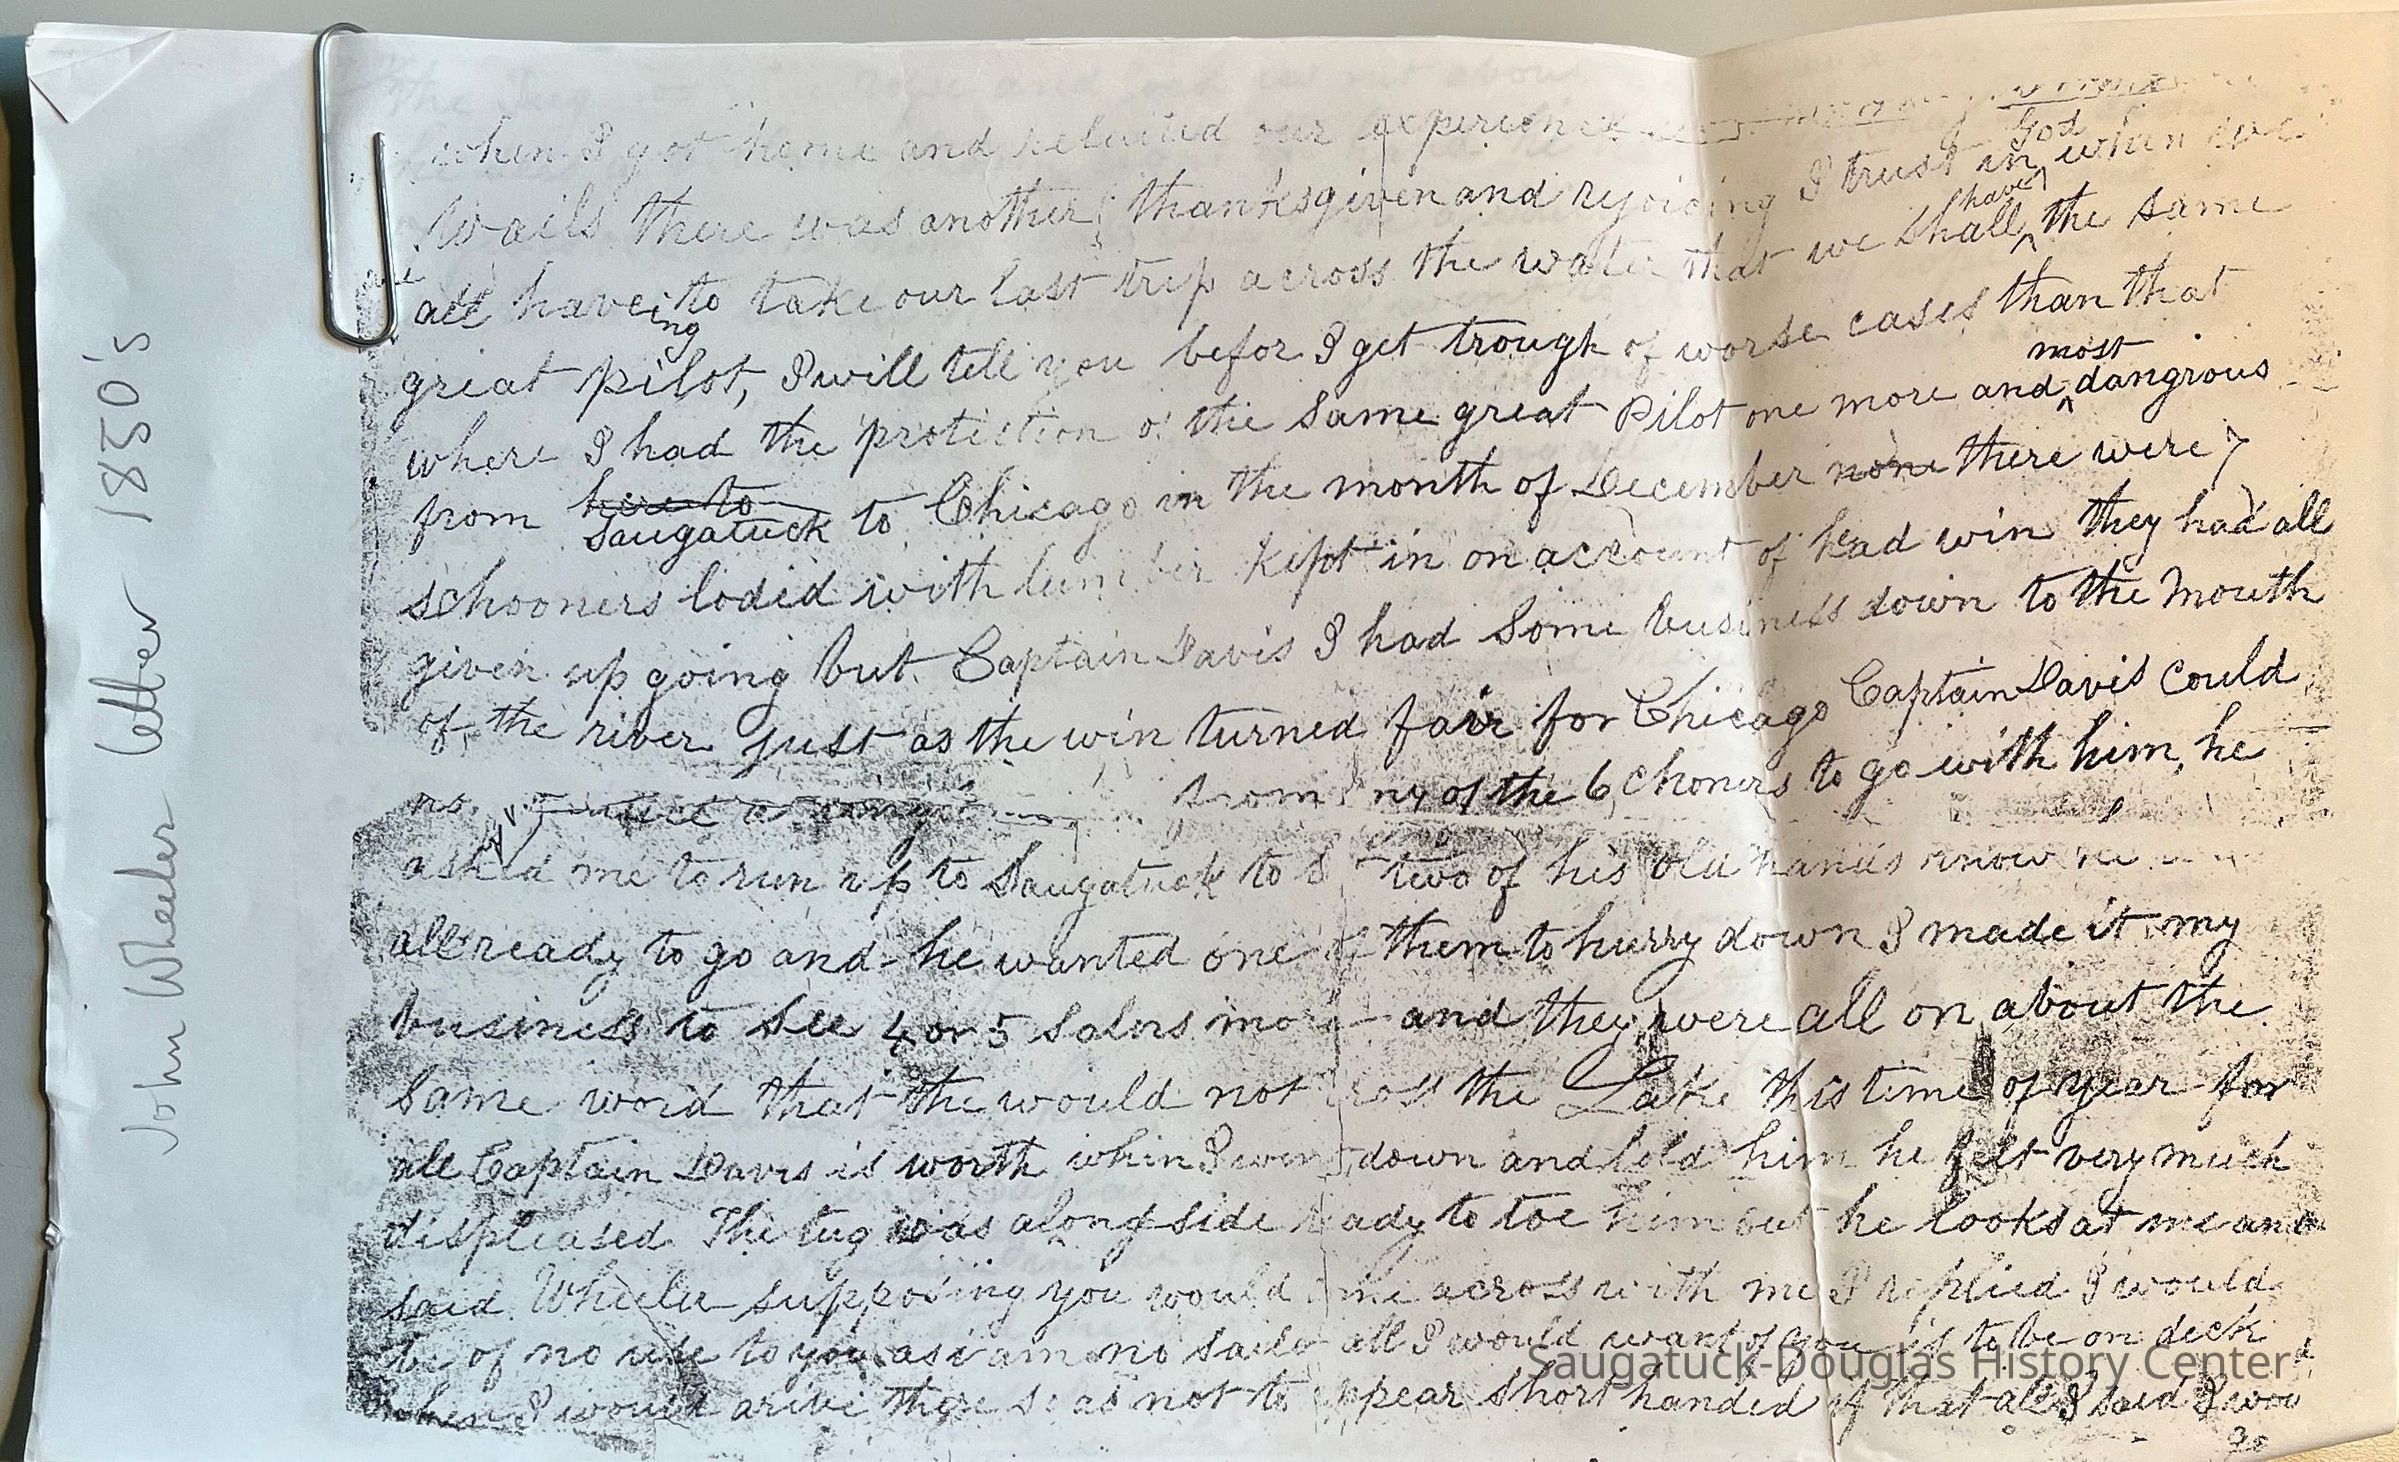 John Wheeler letter 1850's
when I got home and relatied our experience
God
Wails there was another thanksgiven and rejoicing I trust in when we
have
all haveing to take our last trip across the water that we shall the same
ing
great pilot, I will tell you befor I get trough of worse cases than that
most
where I had the protection of the same great Pilot one more and dangrous
from here to Saugatuck to Chicago in the month of December none there were 7
schooners lodid with lumber kept in on account of head win they had all
given up going but Captain Davis I had some business down to the mouth
of the river just as the win turned fair for Chicago Captain Davis could
from any of the 6 choners to go with him, he
askid me to run up to Saugatuck to two of his old hands
all ready to go and he wanted one of them to hurry down I made it my
business to see 4 or 5 salors more and they were all on about the
same word that the would not cross the Lake this time of year for
all Captain Davis is worth when I went down and told him he felt very much
displeased The tug was along side ready to toe him but he looks at me and
said Wheeler supposing you would come across with me I replied I would
be of no use to you as i am no sailor all I would want of you is to be on deck
when I would arive there so as not to appear short handed if that all I said I wou
Saugatuck-Douglas History Center